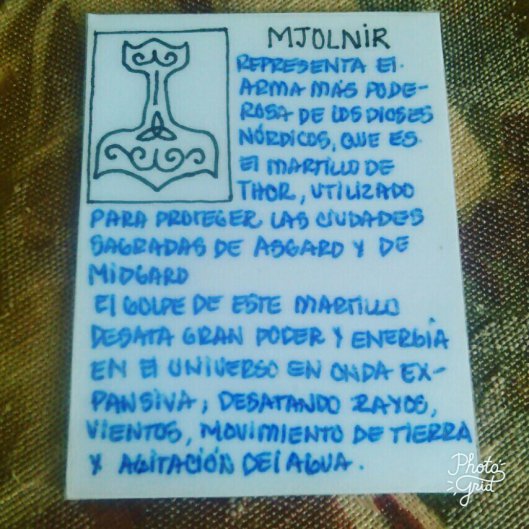 MJOLNIR
REPRESENTA El
ARMA MÁS PODE-
ROSA DE LOS DIOSES
NÓRDICOS, QUE ES
El MARTILLO DE
THOR, UTILIZADO
PARA PROTEGER LAS CIUDADES
SAGRADAS DE ASGARD Y DE
MIDGARD
El GOLPE DE ESTE MARTILLO
DESATA GRAN PODER Y ENERGÍA
EN El UNIVERSO EN ONDA EX-
PANSIVA, DESATANDO RAYOS,
VIENTOS, MOVIMIENTO DE TIERRA
Y AGITACIÓN DEl AGUA.
Photo
Grid